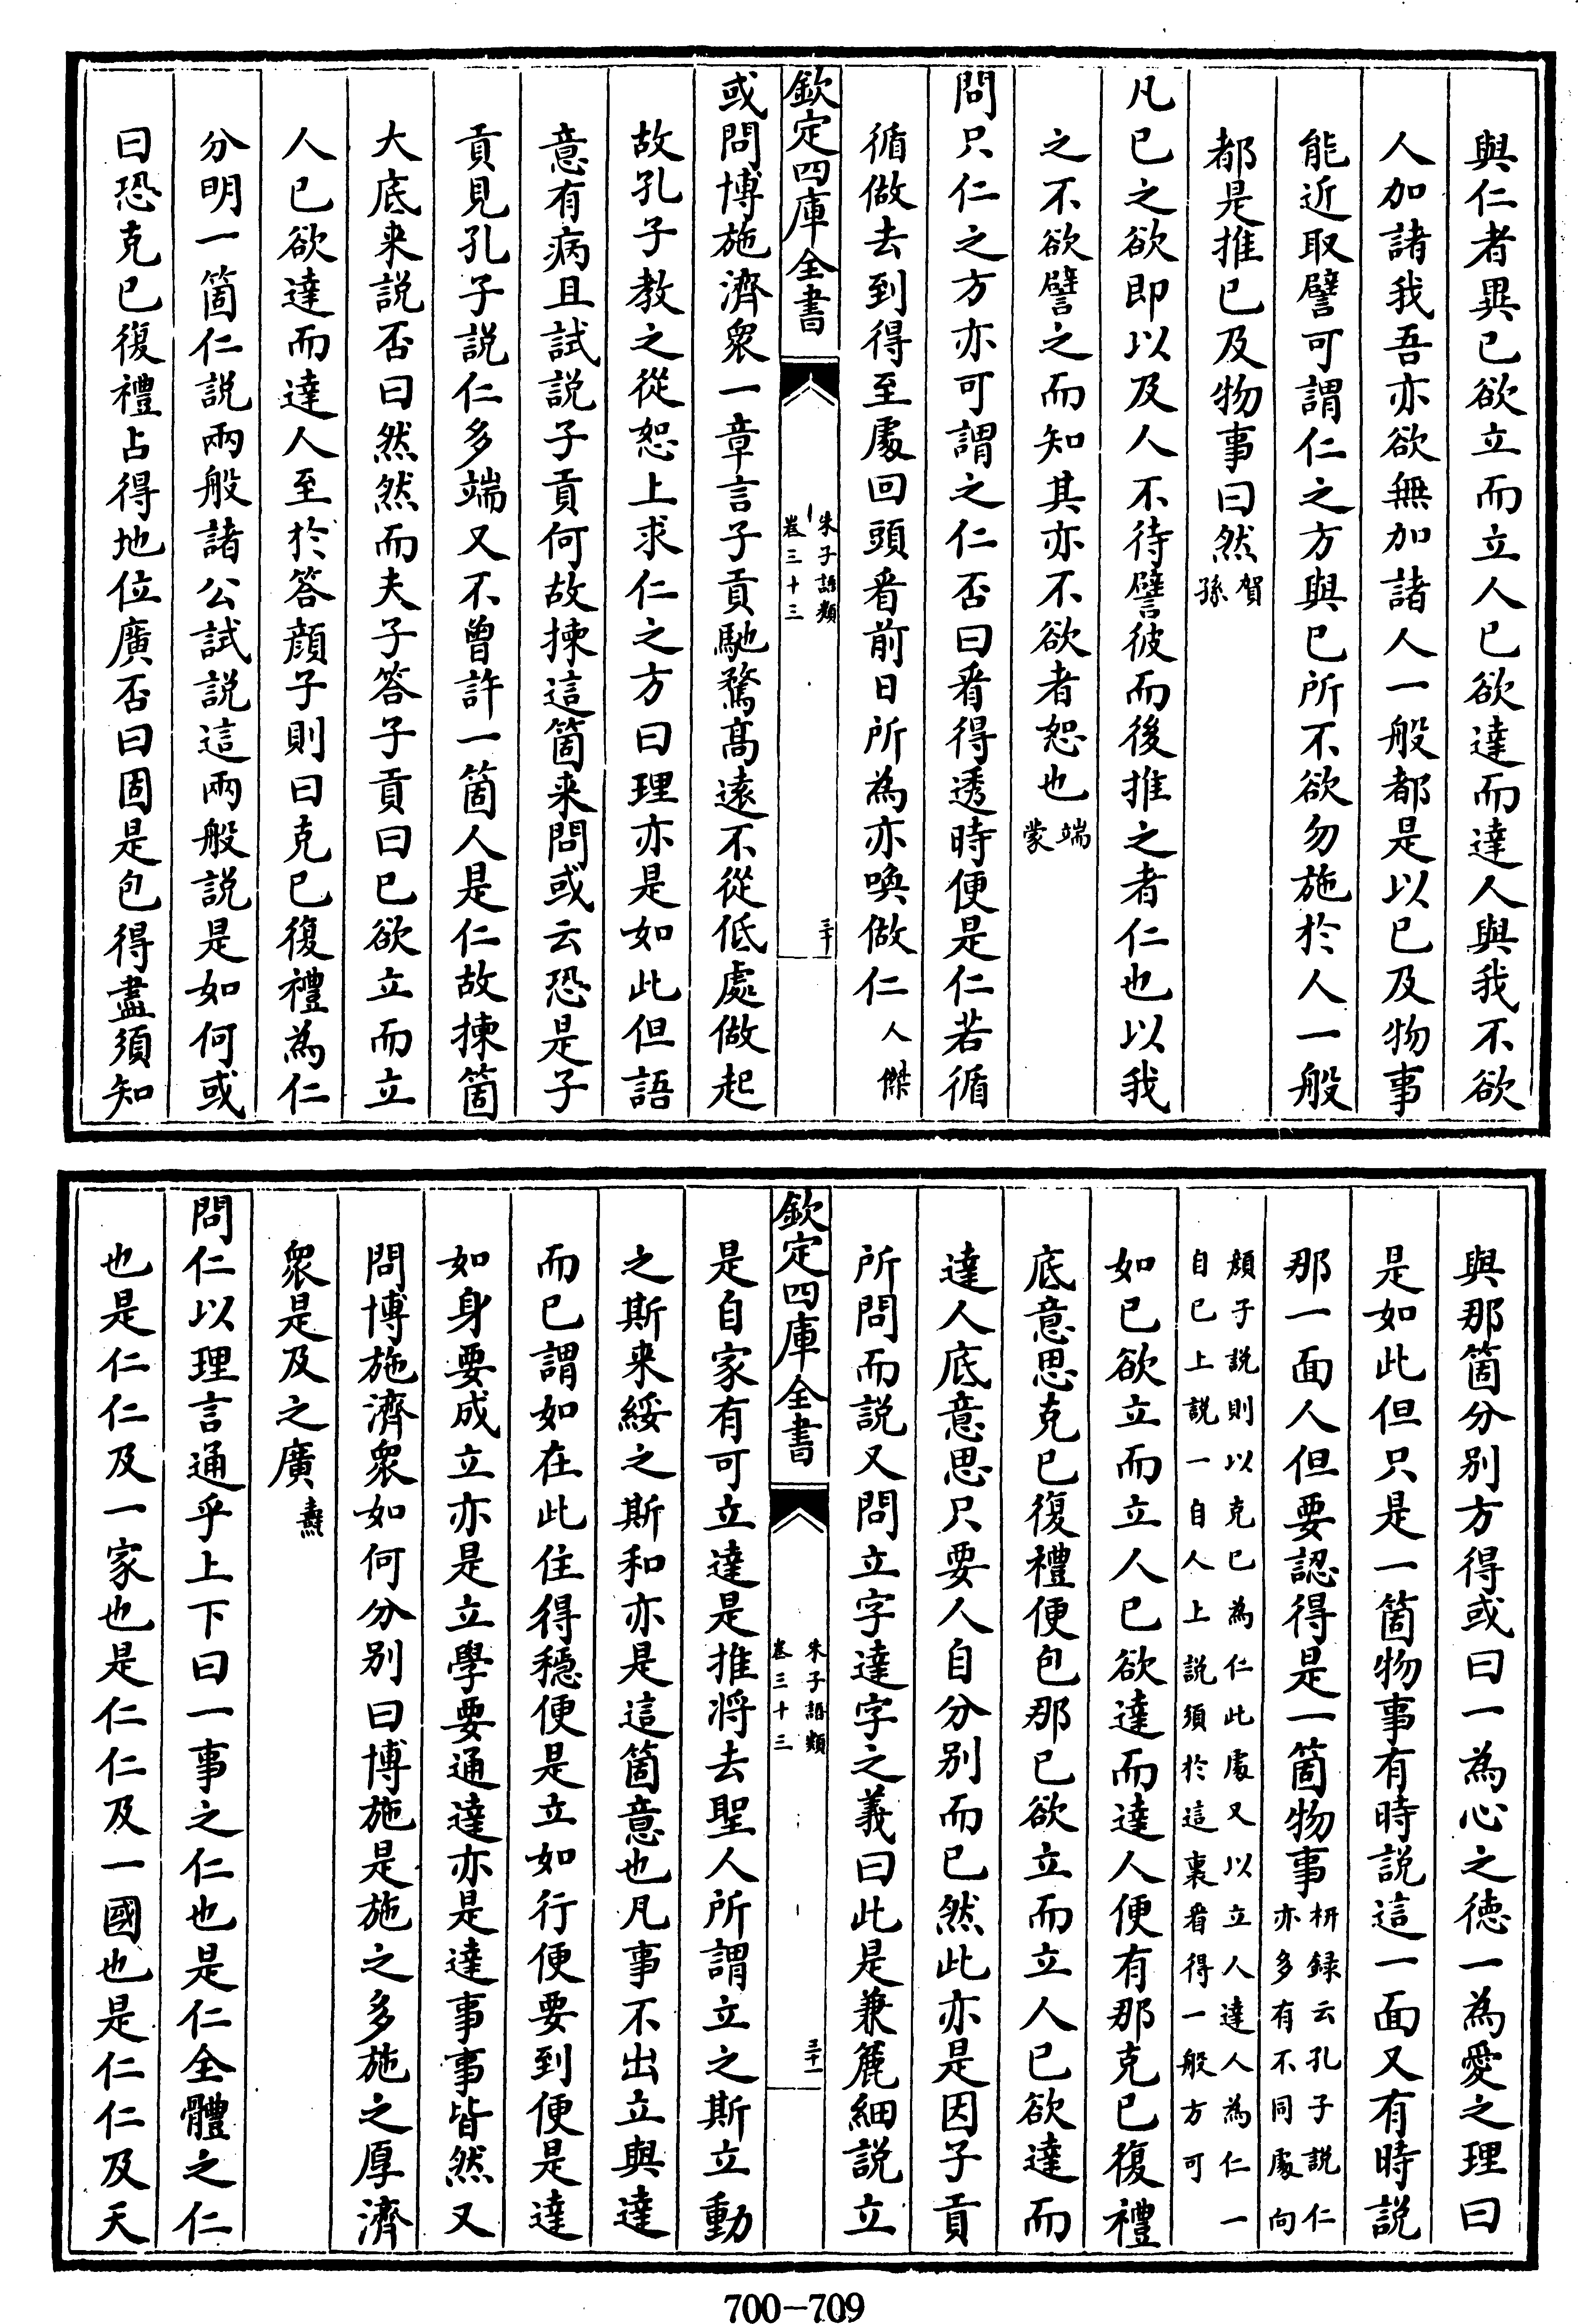 與仁者異已欲立而立人已欲達而達人與我不欲
人加諸我吾亦欲無加諸人一般都是以已及物事
能近取譬可謂仁之方與已所不欲勿施於人一般
都是推已及物事曰然賀孫
凡已之欲即以及人不待譬彼而後推之者仁也以我
之不欲譬之而知其亦不欲者恕也端蒙
問只仁之方亦可謂之仁否曰看得透時便是仁若循
循做去到得至處回頭看前日所為亦喚做仁人傑
欽定四庫全書
朱子語類
卷三十三
三十
或問博施濟衆一章言子貢馳騖髙逺不從低處做起
故孔子教之從恕上求仁之方曰理亦是如此但語
意有病且試說子貢何故揀這箇来問或云恐是子
貢見孔子説仁多端又不曽許一箇人是仁故揀箇
大底来説否曰然然而夫子答子貢曰已欲立而立
人已欲達而達人至於答顔子則曰克已復禮為仁
分明一箇仁説兩般諸公試説這兩般説是如何或
曰恐克已復禮占得地位廣否曰固是包得盡須知
與那箇分别方得或曰一為心之徳一為愛之理曰
是如此但只是一箇物事有時説這一面又有時説
那一面人但要認得是一箇物事枅録云孔子説仁亦多有不同處向
顔子説則以克已為仁此處又以立人達人為仁一自已上説一自人上説須於這裏看得一般方可
如已欲立而立人已欲達而達人便有那克已復禮
底意思克已復禮便包那已欲立而立人已欲達而
達人底意思只要人自分别而已然此亦是因子貢
所問而説又問立字達字之義曰此是兼麄細説立
欽定四庫全書
朱子語類
卷三十三
三十一
是自家有可立達是推将去聖人所謂立之斯立動
之斯来綏之斯和亦是這箇意也凡事不出立與達
而已謂如在此住得穏便是立如行便要到便是達
如身要成立亦是立學要通達亦是達事事皆然又
問博施濟衆如何分别曰博施是施之多施之厚濟
衆是及之廣燾
問仁以理言通乎上下曰一事之仁也是仁全體之仁
也是仁仁及一家也是仁仁及一國也是仁仁及天
700-709